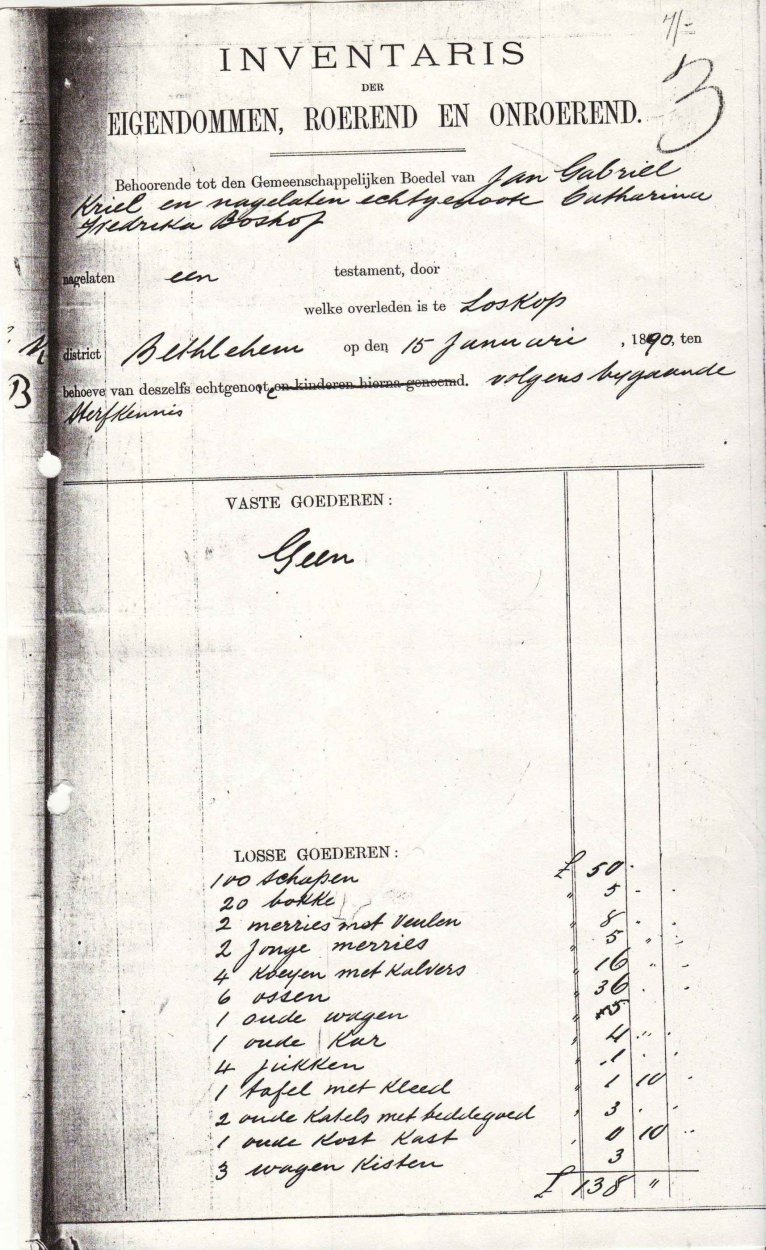 7/-
3
INVENTARIS
DER
EIGENDOMMEN, ROEREND EN ONROEREND.
Behoorende tot den Gemeenschappelijken Boedel van Jan Gabriel
Kriel en nagelaten echtgenoote Catharina
Fredrika Boshof
nagelaten een testament, door
welke overleden is te Loskop
district Bethlehem op den 15 Januari , 1890, ten
B
behoeve van deszelfs echtgenoote en kinderen hierna genoemd. volgens bygaande
sterfkennis
VASTE GOEDEREN:
Geen
LOSSE GOEDEREN:
100 schapen £ 50 .
20 bokke " 5 . .
2 merries met veulen " 8 . .
2 jonge merries " 5 " .
4 koeyen met kalvers " 16 . .
6 ossen " 36 . .
1 oude wagen " 5
1 oude kar " 4 " .
4 jukken " 1 . .
1 tafel met kleed " 1 10 .
2 oude katels met beddegoed " 3 . .
1 oude kost kast " 0 10 "
3 wagen kisten 3
£ 138 "